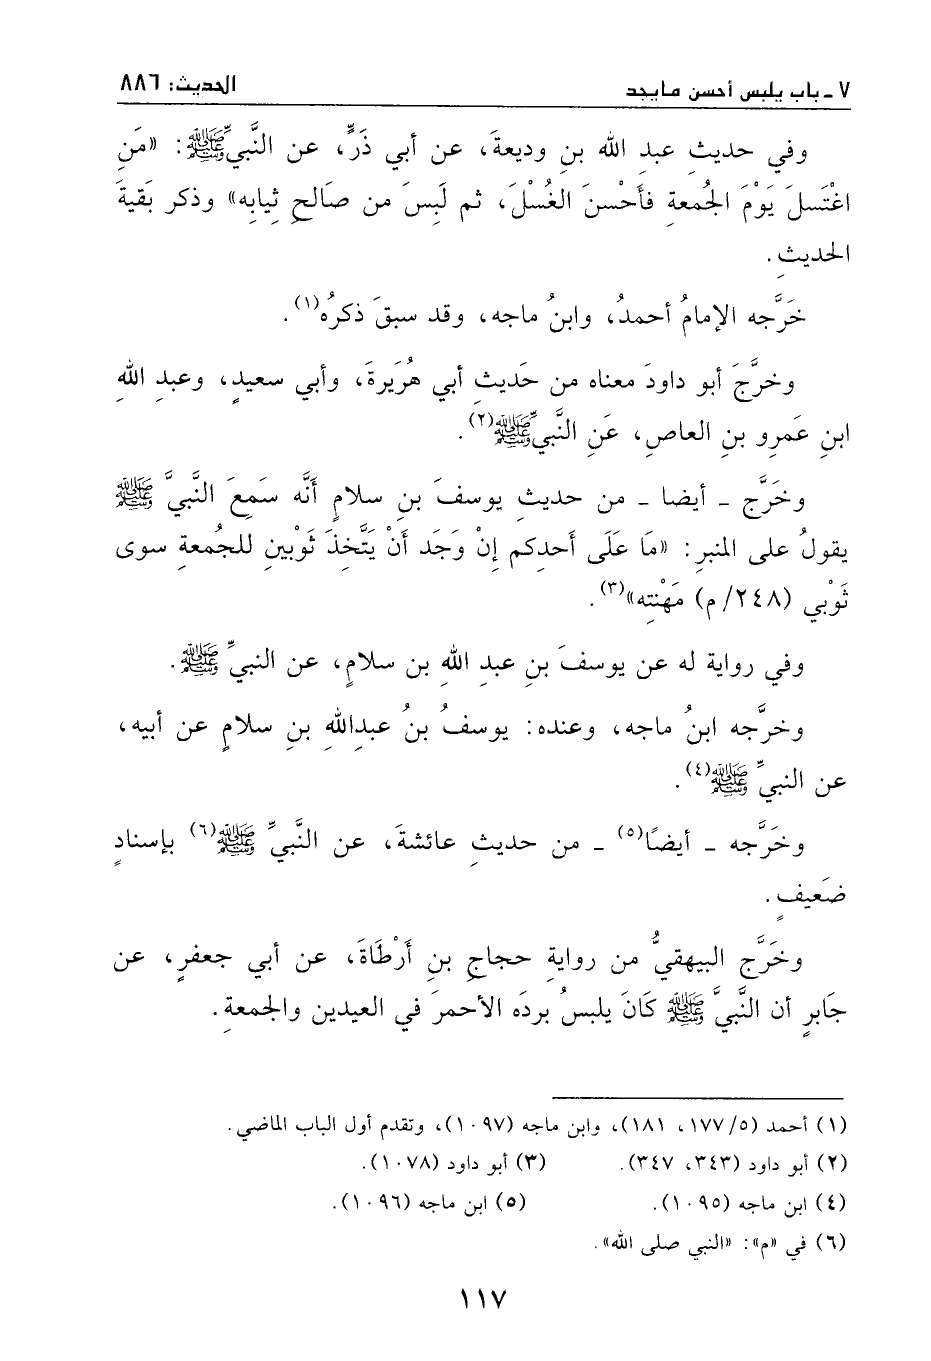 ٧ - باب يلبس أحسن مايجد
الحديث: ٨٨٦
وفي حديثِ عبدِ الله بنِ وديعةَ، عن أبي ذَرٍّ، عن النَّبيِّ ﷺ: «مَنِ
اغْتَسلَ يَوْمَ الجُمعةِ فأَحْسنَ الغُسْلَ، ثم لَبِسَ من صَالحِ ثِيابِه» وذكر بَقيةَ
الحديثِ.
خَرَّجه الإمامُ أحمدُ، وابنُ ماجه، وقد سبقَ ذكرُه(١).
وخرَّجَ أبو داودَ معناه من حَديثِ أبي هُرَيرةَ، وأبي سعيدٍ، وعبدِ اللهِ
ابنِ عَمرِو بنِ العاصِ، عَنِ النَّبيِّ ﷺ(٢).
وخَرَّج - أيضا - من حديثِ يوسفَ بنِ سلامٍ أَنَّه سَمِعَ النَّبيَّ ﷺ
يقولُ على المنبرِ: «مَا عَلَى أحدِكم إِنْ وَجَد أَنْ يَتَّخِذَ ثوْبينِ للجُمعةِ سوى
ثَوْبي (٢٤٨/م) مَهْنتِه»(٣).
وفي رواية له عن يوسفَ بنِ عبدِ اللهِ بن سلامٍ، عن النبيِّ ﷺ.
وخرَّجه ابنُ ماجه، وعنده: يوسفُ بنُ عبداللهِ بنِ سلامٍ عن أبيه،
عن النبيِّ ﷺ(٤).
وخَرَّجه - أيضًا(٥) - من حديثِ عائشةَ، عن النَّبيِّ ﷺ(٦) بإسنادٍ
ضَعيفٍ.
وخَرَّج البيهقيُّ من روايةِ حجاجِ بنِ أَرْطَاةَ، عن أبي جعفرٍ، عن
جَابرٍ أن النَّبيَّ ﷺ كَانَ يلبسُ بردَه الأحمرَ في العيدين والجمعةِ.
(١) أحمد (٥/ ١٧٧، ١٨١)، وابن ماجه (١٠٩٧)، وتقدم أول الباب الماضي.
(٢) أبو داود (٣٤٣، ٣٤٧). (٣) أبو داود (١٠٧٨).
(٤) ابن ماجه (١٠٩٥). (٥) ابن ماجه (١٠٩٦).
(٦) في «م»: «النبي صلى الله».
١١٧